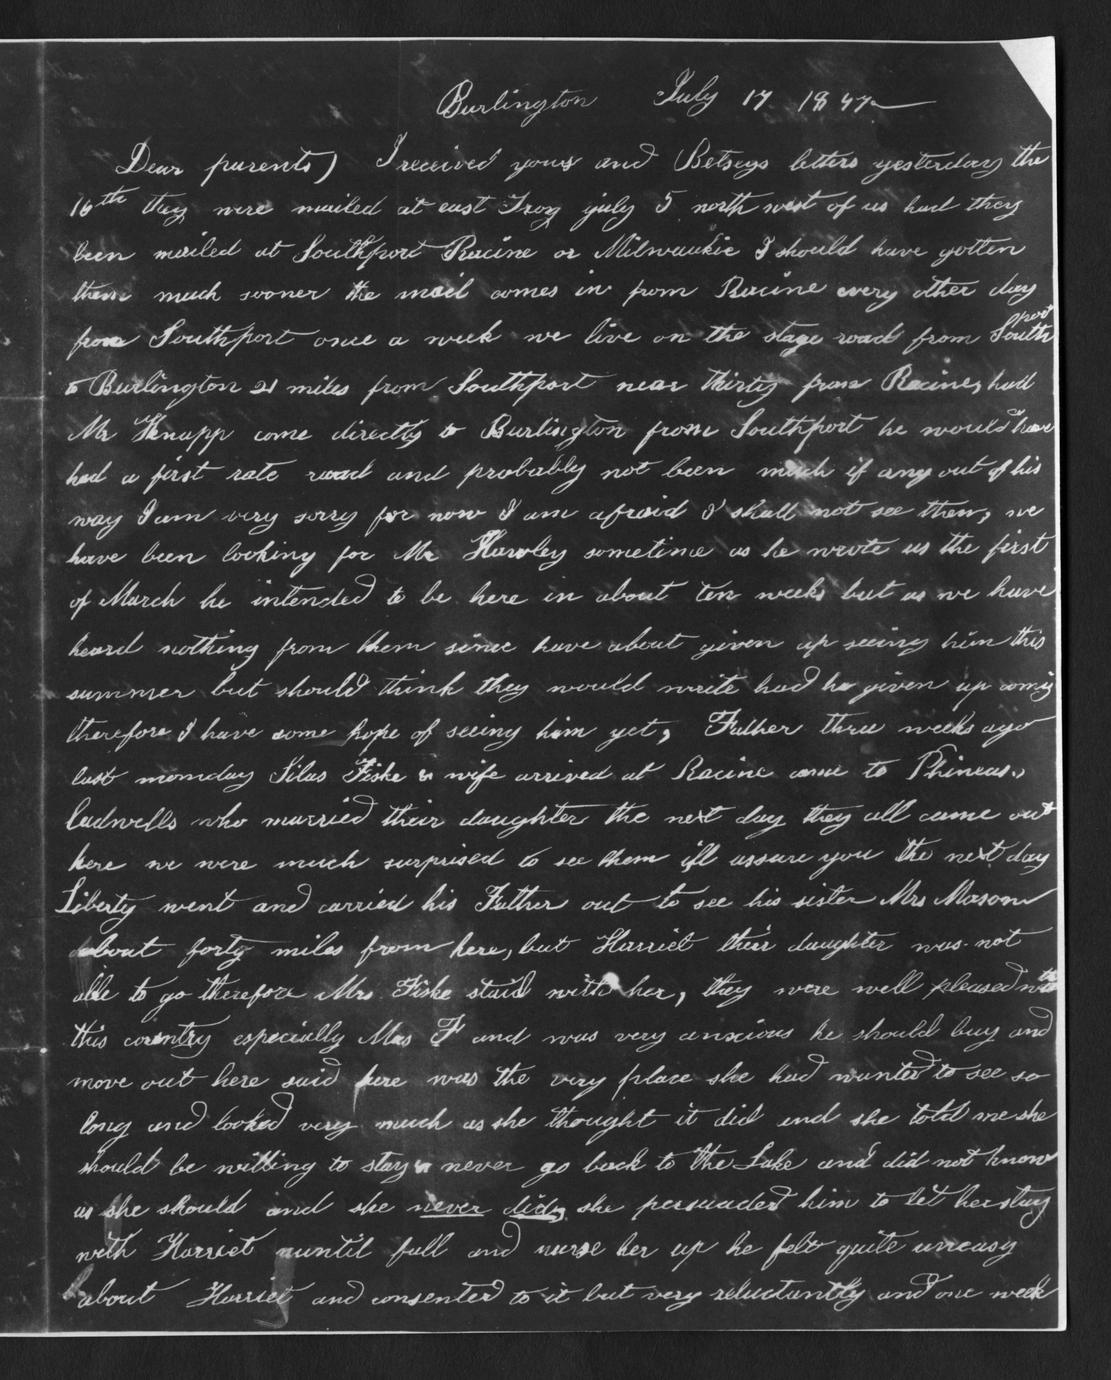 Burlington July 17 1847
Dear parents) I received yours and Betseys letters yesterday the
16th they were mailed at east Troy july 5 north west of us had they
been mailed at Southport Racine or Milwaukie I should have gotten
them much sooner the mail comes in from Racine every other day
from Southport once a week we live on the stage road from South port
to Burlington 21 miles from Southport near thirty from Racine, had
Mr Knapp come directly to Burlington from Southport he would have
had a first rate road and probably not been much if any out of his
way I am very sorry for now I am afraid I shall not see them, we
have been looking for Mr Hawley sometime as he wrote us the first
of March he intended to be here in about ten weeks but as we have
heard nothing from them since have about given up seeing him this
summer but should think they would write had he given up comig
therefore I have some hope of seeing him yet, Father three weeks ago
last monday Silas Fiske & wife arrived at Racine came to Phineas.
Cadwells who married their daughter the next day they all came out
here we were much surprised to see them ill assure you the next day
Liberty went and carried his Father out to see his sister Mrs Mason
about forty miles from here, but Harriet their daughter was not
able to go therefore Mrs Fiske staid with her, they were well pleased with
this country especially Mrs F and was very anxious he should buy and
move out here said here was the very place she had wanted to see so
long and looked very much as she thought it did and she told me she
should be willing to stay & never go back to the Lake and did not know
as she should and she never did, she persuaded him to let her stay
with Harriet untill fall and nurse her up he felt quite uneasy
about Harriet and consented to it but very reluctantly and one week